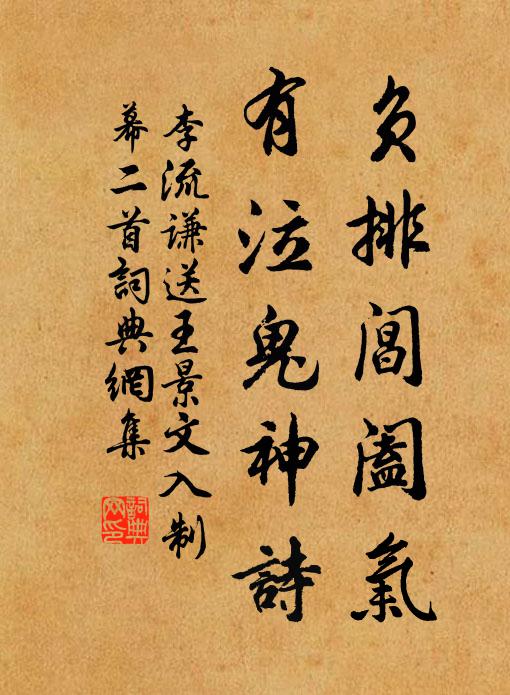 負排閶闔氣
有泣鬼神詩
李流謙送王景文入制
幕二首詞典網集
詞典
網印